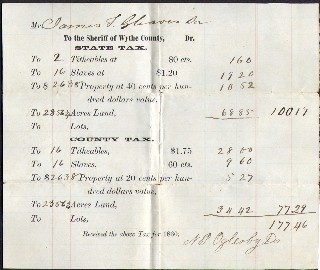 Mr James T. Gleaves Dr
To the Sheriff of Wythe County, Dr.
STATE TAX.
To 2 Titheables at 80 cts. 1 60
To 16 Slaves at $1.20 19 20
To $2638 Property at 40 cents per hun- 10 52
dred dollars value,
To Acres Land, 68 85 100 17
To Lots,
COUNTY TAX.
To 16 Titheables, $1.75 28 00
To 16 Slaves, 60 cts. 9 60
To $2638 Property at 20 cents per hun- 5 27
dred dollars value,
To Acres Land, 34 42 77 29
To Lots, 177.46
Received the above Tax for 1860,
Oglesby